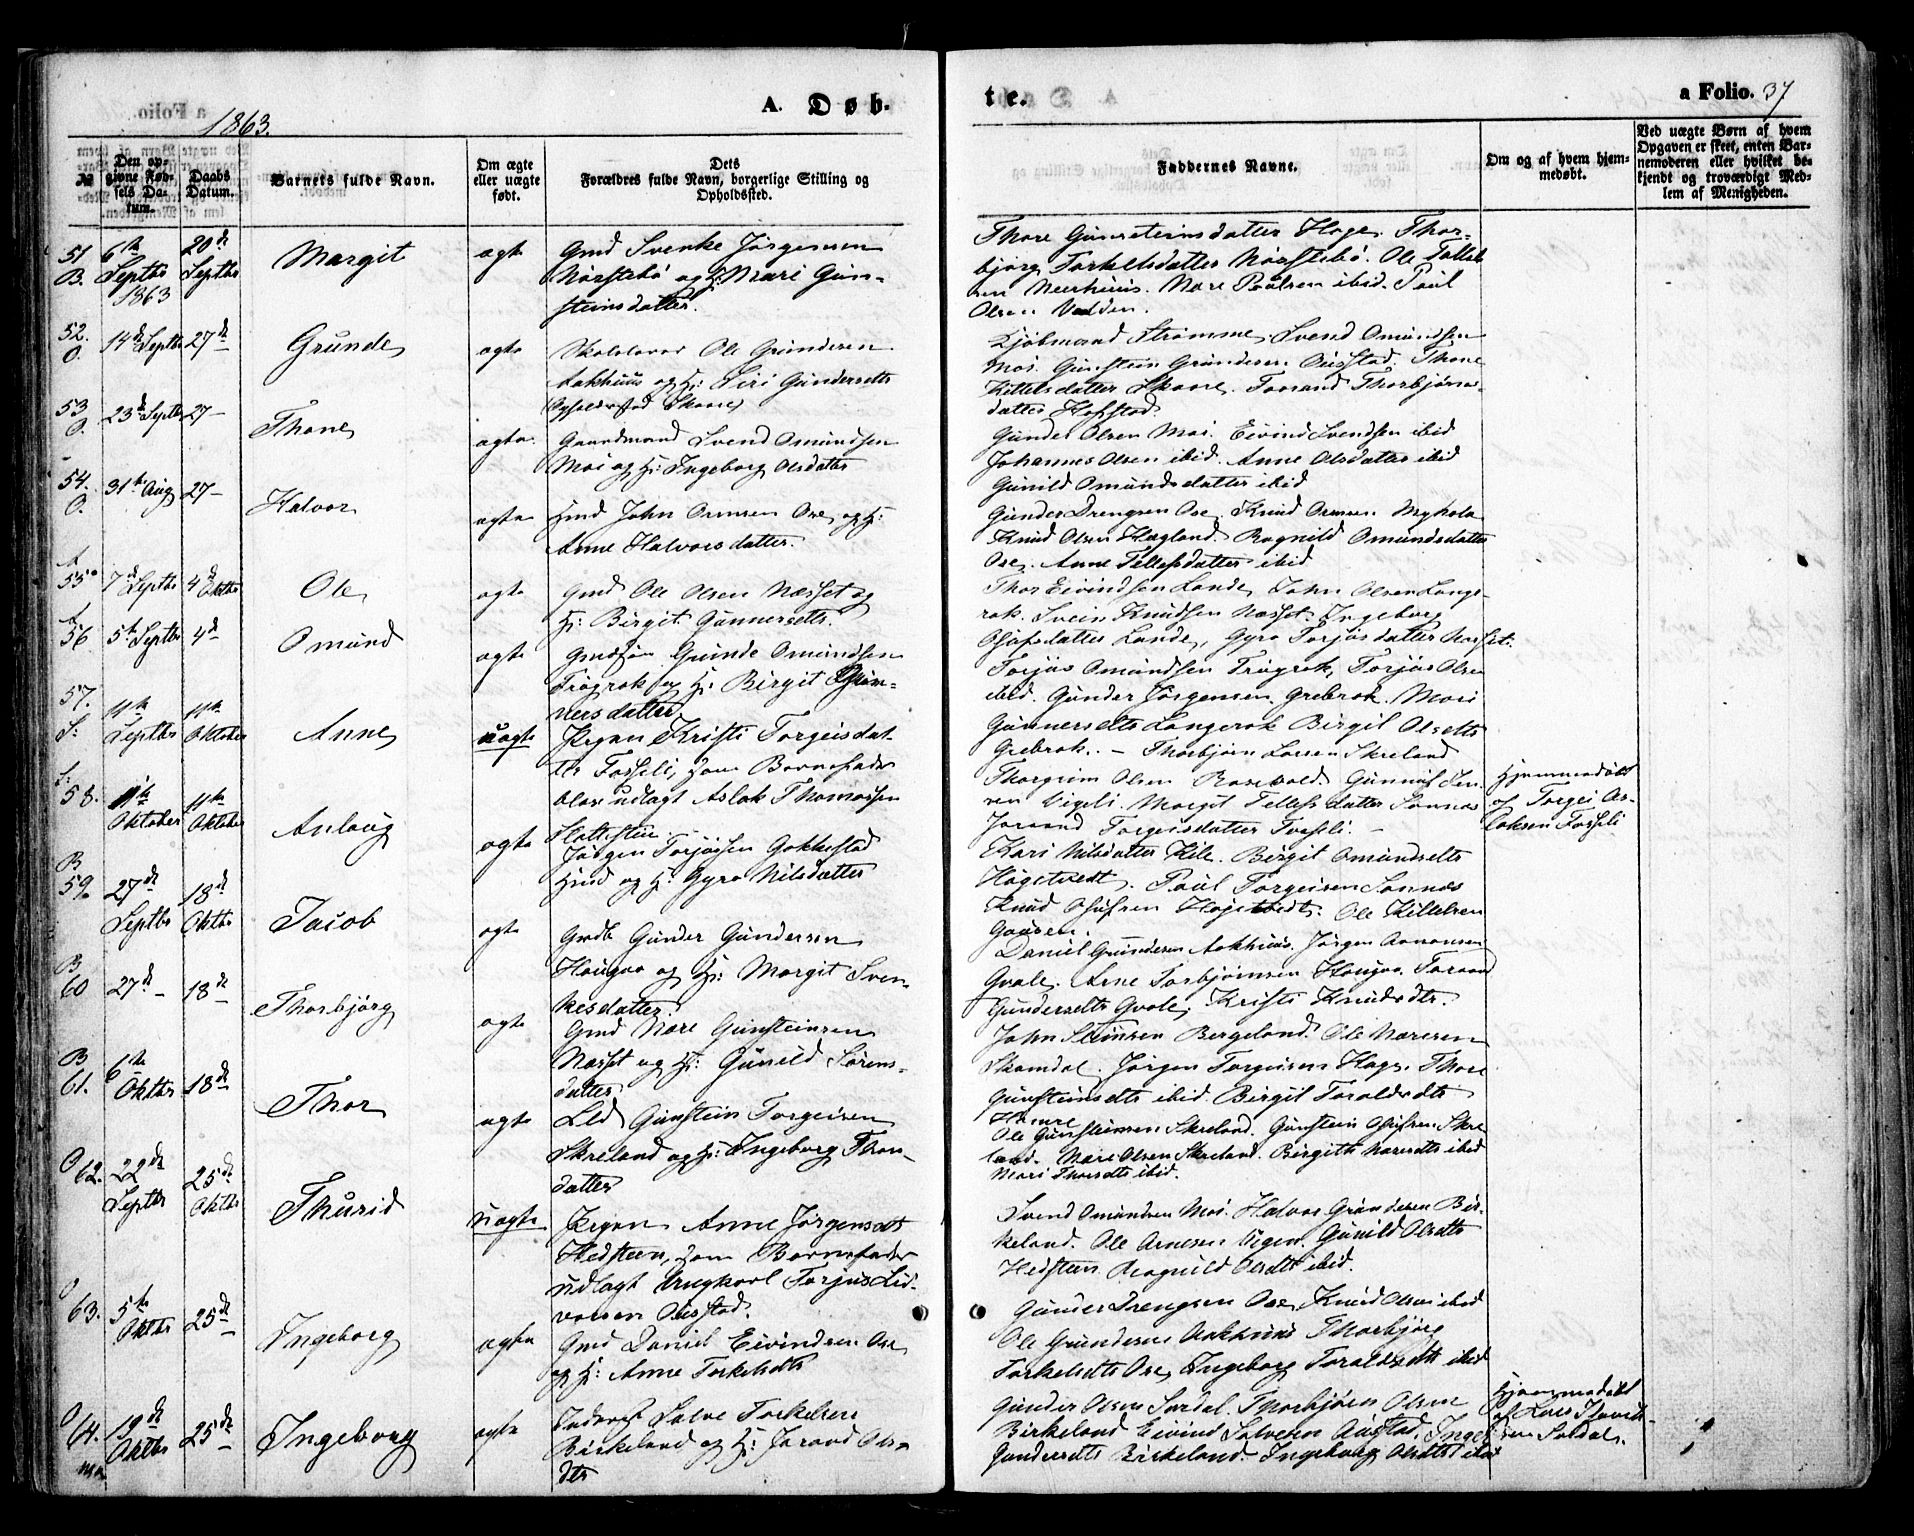 1863.
A. Døb-
№
Den op-
givne Fød-
sels Da-
tum.
Daabs
Datum.
Barnets fulde Navn.
Om ægte
eller uægte
født.
Dets
Forældres fulde Navn, borgerlige Stilling og
Opholdssted.
51
B.
6te
Septbr
1863
20de
Septbr
Margit
ægte
Gmd Svenke Jørgensen
og H: Mari Gun-
steinsdatter.
52.
O.
14de Septbr
27de
Grunde
ægte
Skolelærer Ole Grundesen
Aakhuus og H: Siri Gundersdtr
Opholdssted Skone
53
O.
23de Septbr
27-
Thone
ægte
Gaardmand Svend Omundsen
Moi og H: Ingeborg Olsdatter
54.
O.
31te Aug
27-
Halvor
ægte
Hmd John Ormsen Ose og H:
Anne Halvorsdatter.
A
55.
7de Septbr
4de Oktbr
Ole
ægte
Gmd Ole Olsen Næsset og
H: Birgit Gunnersdtr.
A
56
5te Septbr
4de
Omund
ægte
Grunde Omundsen
og H: Birgit Gun-
nersdatter
57.
S:
11te
Septbr
11te
Oktober
Anne
uægte
Pigen Kristi Torgeisdat-
ter Fosseli, som Barnefader
blev udlagt Aslak Thomassen
S:
58.
Oktober
11te
Oktober
Anlaug
ægte
Jørgen Torjussen Gokkestad
Hmd og H: Gyro Nilsdatter
B
59.
27de
Septbr
18de
Oktbr
Jacob
ægte
Gmd Gunder Gundersen
Haugaa og H: Margit Sven-
kesdatter.
B
60
27de -
18de
Thorbjørg
ægte
Gmd Nare Gunsteinsen
Næsset og H: Gunild Sørens-
datter
B
61.
6te
Oktbr
18de
Thor
ægte
Gunstein Torgeisen
Skreland og H: Ingeborg Thors-
datter
O
62.
22de
Septbr
25de
Oktbr
Thurid
uægte
Pigen Anne Jørgensdtr
Hedsteen, som Barnefader
udlagt Ungkarl Torjus Hal-
vorsen Ousstad.
O
63.
5te
Oktbr
25de
Ingeborg
ægte
Gmd Daniel Eivindsen Ose
og H: Anne Torkelsdtr
O
64.
19de
Oktbr
25de
Ingeborg
ægte
Inderst Salve Torkelsen
Birkeland og H: Joraand Ols-
dtr
te.
a Folio. 37
Faddernes Navne.
Om og af hvem hjem-
medøbt.
Ved uægte Børn af hvem
Opgaven er skeet, enten Bar-
nemoderen eller hvilket be-
kjendt og troværdigt Med-
lem af Menigheden.
Thore Gunsteinsdatter Hage. Thor-
bjørg Torkelsdatter Ole Tellef-
sen Neerhuus. Nare Paalsen ibid. Paul
Olsen
Kjøbmand Strømme. Svend Omundsen
Moi. Gunstein Grundesen Ousstad. Thone
Kittelsdatter Skone. Toraand Thorbjørns-
datter Hofstad.
Gunder Olsen Moi. Eivind Svendsen ibid
Johannes Olsen ibid. Anne Olsdatter ibid
Gunild Omundsdatter ibid
Gunder Drengsen Ose. Knud Ormsen
Knud Olsen Hægland. Ragnild Omundsdatter
Ose. Anne Tellefsdatter ibid
Thor Eivindsen Lande, John Olsen Lange-
rak. Svein Knudsen Næsset. Ingeborg
Olsdatter Lande, Gyro Torjusdatter Næsset.
Torjus Omundsen Torjus Olsen
ibid. Gunder Jørgensen Grebrok. Mari
Gunnersdtr Langerak Birgit Olsdtr
Grebrok. - Thorbjørn Larsen Skreland
Thorgrim Olsen Rosevold. Gunnuf Jen-
sen Margit Tellefsdatter Sannes
Joraand Torgeisdatter Fosseli. -
Hjemmedøbt
af Torgei As-
laksen Fosseli
Kari Nilsdatter Kile. Birgit Omundsdtr
Høgetvedt. Paul Torgeisen Sannes
Knud Olsen Høgetvedt. Ole Kittelsen
Daniel Gundersen Aakhuus. Jørgen Aanonsen
Qvale. Arne Torbjørnsen Haugaa. Toraand
Gundersdtr Qvale. Kristi Knudsdtr.
John Steinsen Bergeland. Ole Naresen
Skomdal. Jørgen Torgeisen Hage. Thore
Gunsteinsdtr ibid. Birgit Toraldsdtr
Ole Gunsteinsen Skreland. Gunstein Olsen Skre-
land. Nare Olsen Skreland. Birgith Naresdtr ibid
Mari Thorsdtr ibid.
Svend Omundsen Moi. Halvor Grundesen Bir-
keland. Ole Arnesen Vigen. Gunild Olsdtr
Hedsteen. Ragnild Olsdtr ibid.
Gunder Drengsen Ose. Knud Olsen ibid
Ole Grundesen Aakhuus Thorbjørg
Torkelsdtr Ose, Ingeborg Toraldsdtr ibid
Gunder Olsen Sordal. Thorbjørn Olsen
Birkeland Eivind Salvesen Austad, Ingeb.
Gundersdtr Birkeland. Ingeborg Olsdtr ibid
Hjemmedøbt
af Lars
Sordal.